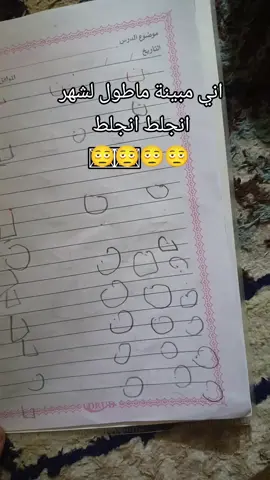 موضوع الدرس
التاريخ
اني مبينة ماطول لشهر
انجلط انجلط
😳😳😳😳